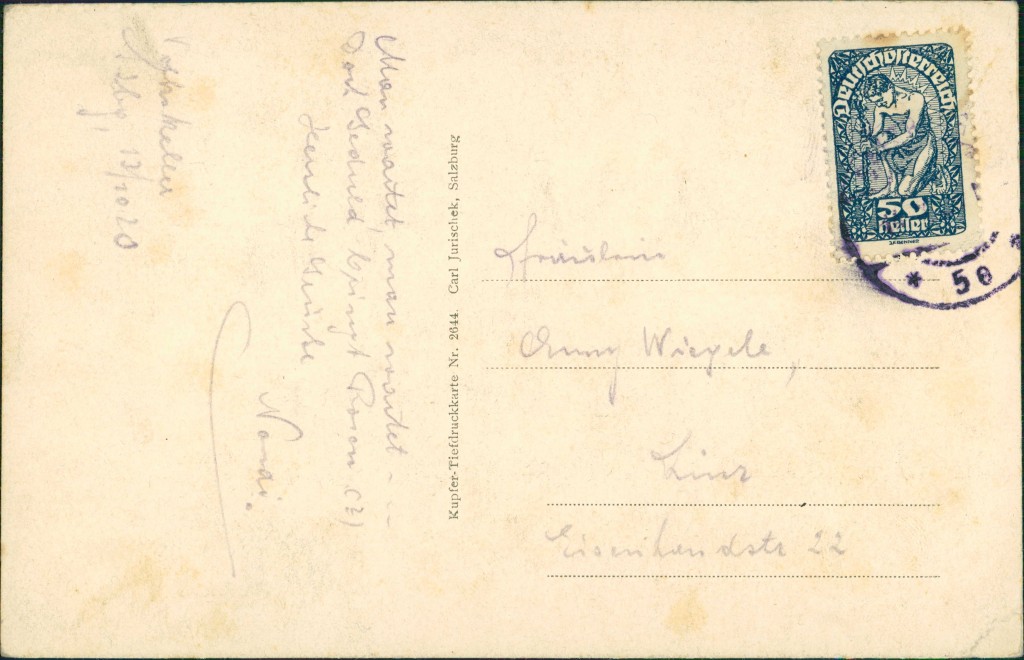 Sbg, 13/10 20
Man wartet, man wartet - -
Doch Geduld bringt Rosen (?)
Herzliche Grüße
Nandi.
Kupfer-Tiefdruckkarte Nr. 2644. Carl Jurischek, Salzburg
Deutschösterreich
50
Heller
* 5e *
Fräulein
Anny Wiegele,
Linz
Eisenhandstr 22